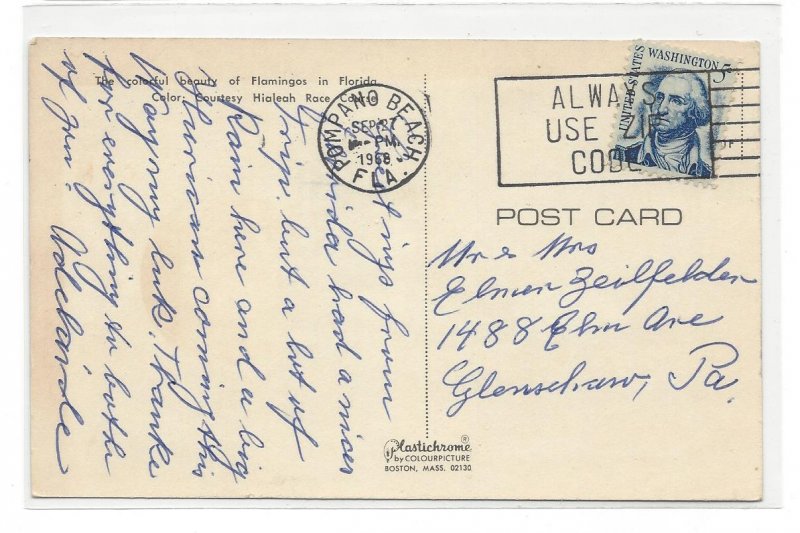 The colorful beauty of Flamingos in Florida
Color: Courtesy Hialeah Race Course
POMPANO BEACH
SEP 27
PM
1968
FLA.
ALWAYS
USE ZIP
CODE
UNITED STATES
WASHINGTON
5c
POST CARD
Mr & Mrs
Elmer Zeilfelder
1488 Elm Ave
Glenschaw, Pa.
Greetings from
Florida had a nice
trip, but a lot of
Rain here and a big
Hurricane coming this
Way my luck. Thanks
for everything to both
of you. Adelaide
Plastichrome®
by COLOURPICTURE
BOSTON, MASS. 02130